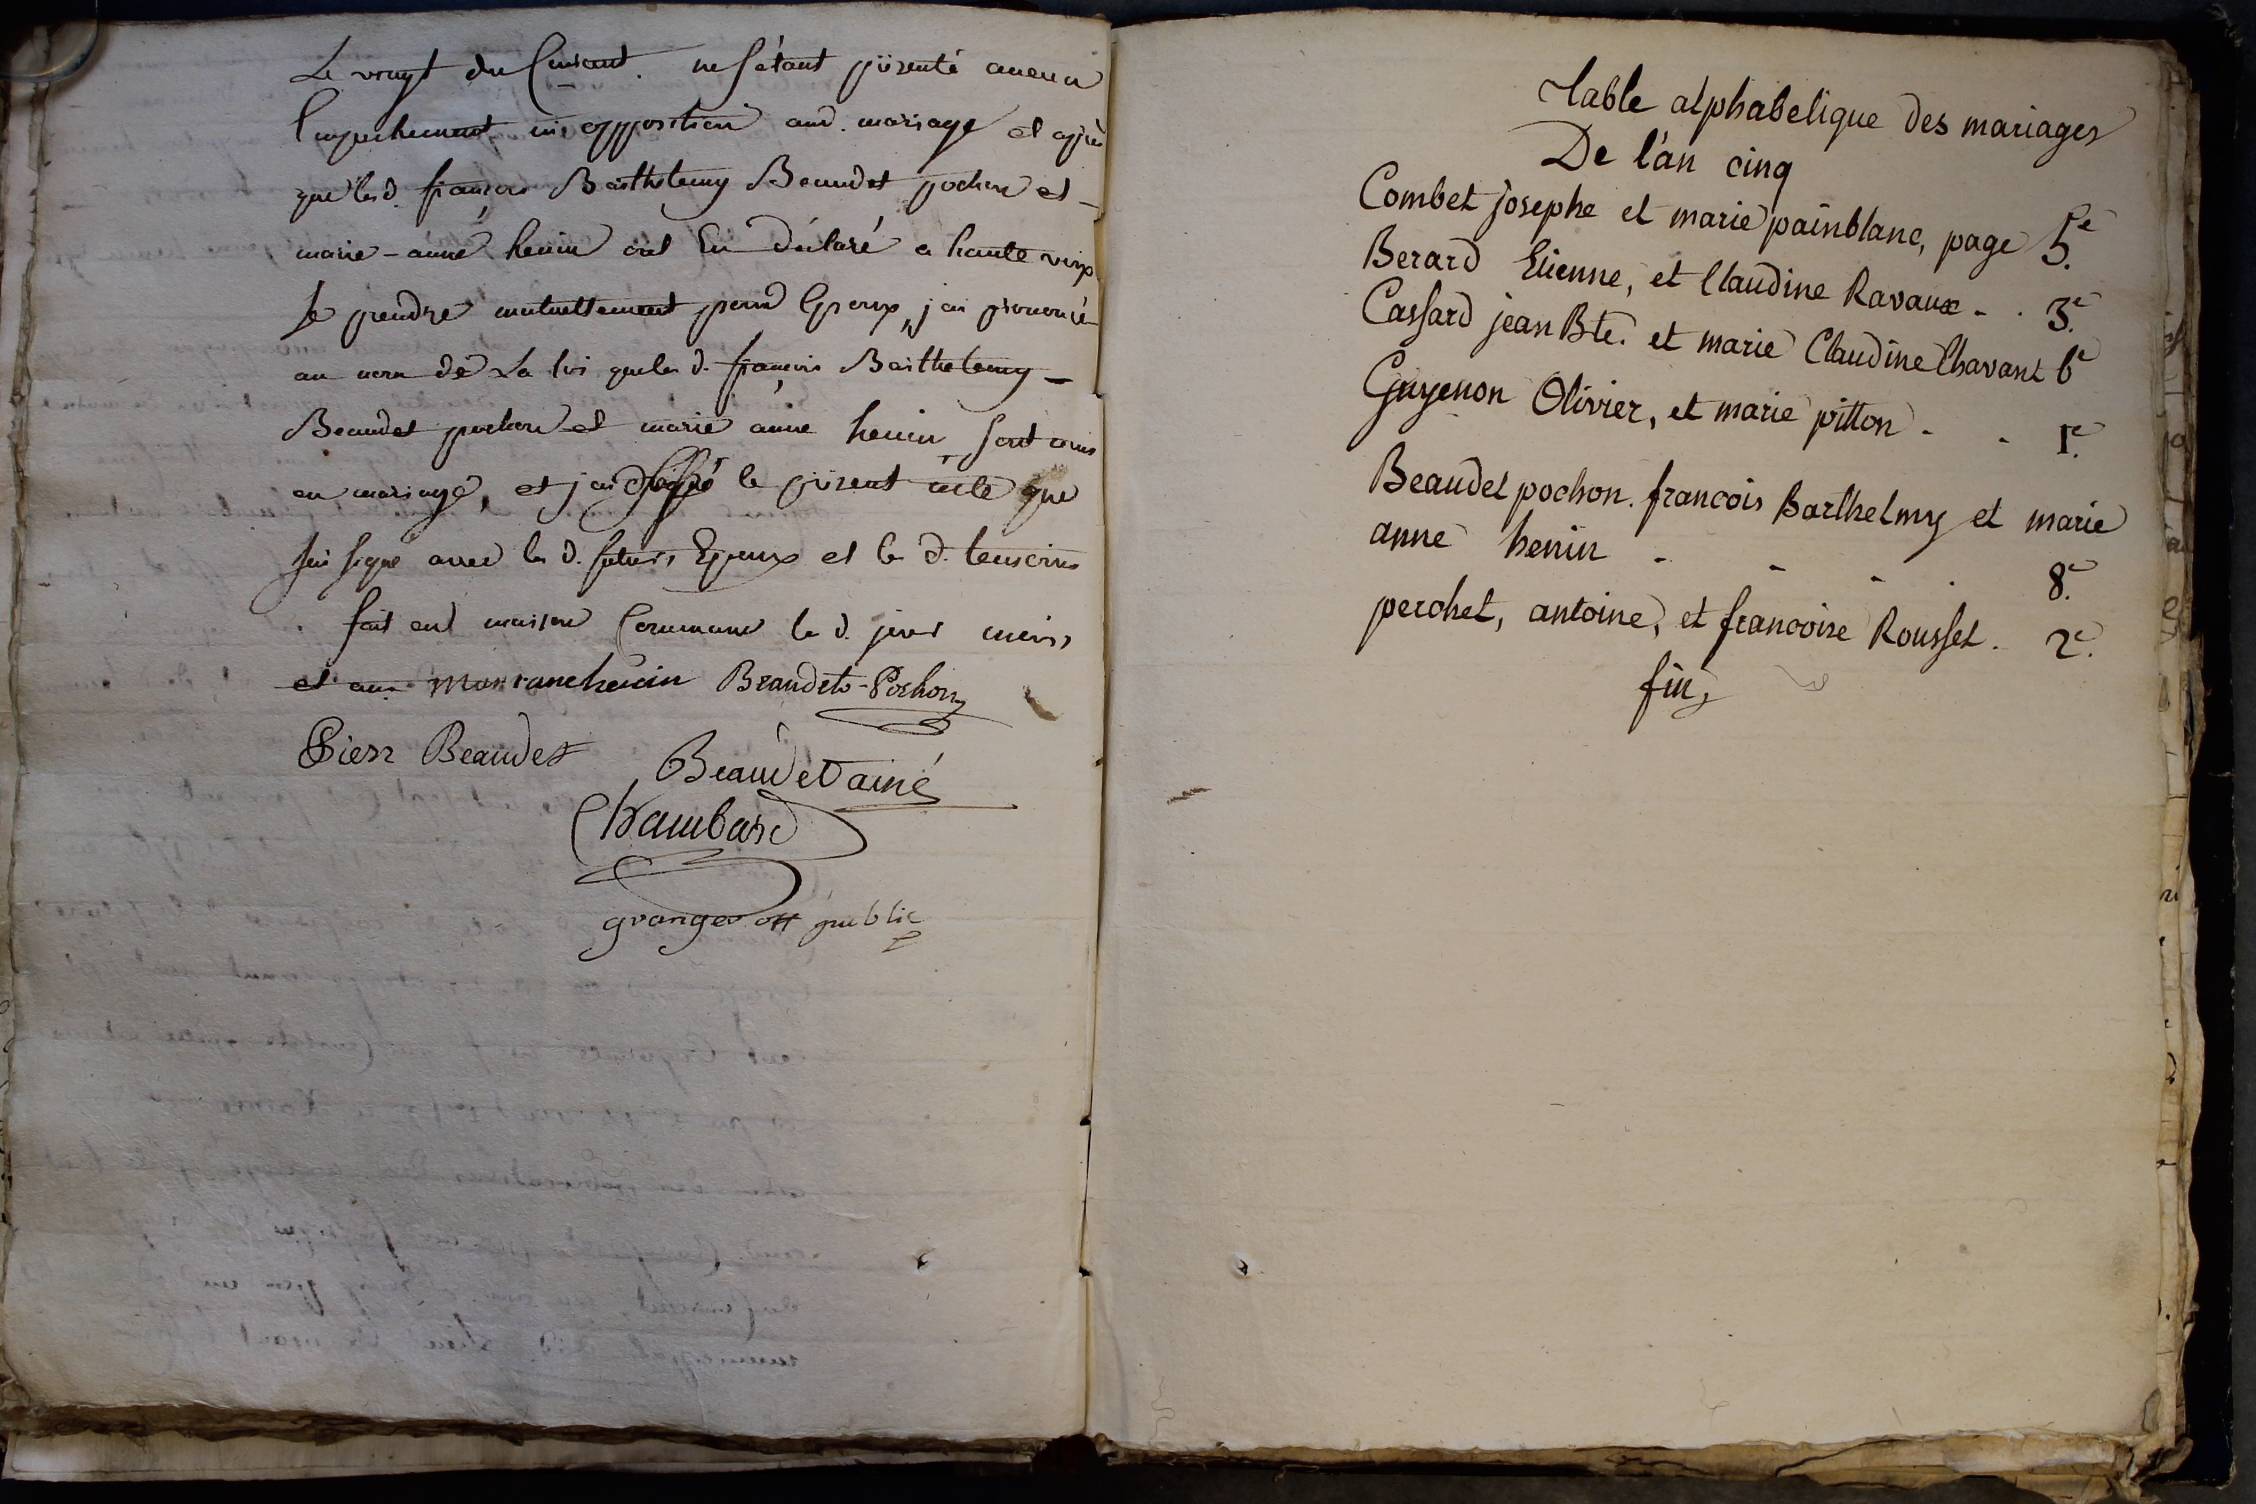 Le vingt du Courant. ne s'étant présenté aucun
Empechement ni opposition aud. mariage et après
que lesd. françois Barthelemy Beaudet pochon et
marie-anne henin ont Eu déclaré a haute voix
se prendre mutuellement pour Epoux, j'ai prononcé
au nom de La loi que les d. françois Barthelemy
Beaudet pochon et marie anne henin, sont unis
en mariage, et j'ai rédigé le présent acte que
j'ai signé avec les d. futurs Epoux et les d. temoins
fait en maison Commune le d. jour mois
et an. Marianehenin Beaudet-Pochon
Pierr Beaudet Beaudet ainé
Chambard
granger off public
Table alphabetique des mariages
De l'an cinq
Combet josephe et marie painblanc, page 5e.
Berard Etienne, et Claudine Ravaux - . 3e.
Cassard jean Bte. et marie Claudine Chavant 6e
Guyenon Olivier, et marie pitton - - 1e.
Beaudet pochon. francois Barthelmy et marie
anne henin - - - . 8e.
perchet, antoine, et francoise Rousset. 2e.
fin,